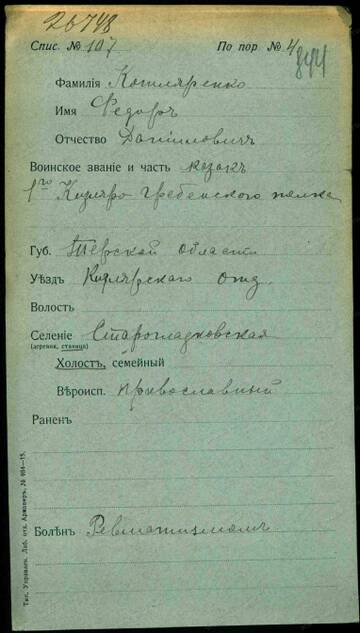 26748
Спис. № 107 По пор. № 4
844
Фамилія Котляренко
Имя Ѳедоръ
Отчество Даніиловичъ
Воинское званіе и часть казакъ
1го Кизляро Гребенского полка
Губ. Терской области
Уѣздъ Кизлярского Отд.
Волость
Селеніе Старогладковская
(деревня, станица)
Холостъ, семейный
Вѣроисп. православный
Раненъ
Болѣнъ Ревматизмомъ
Тип. Управлен. Лаб. отх. Армавиръ, № 904—15.